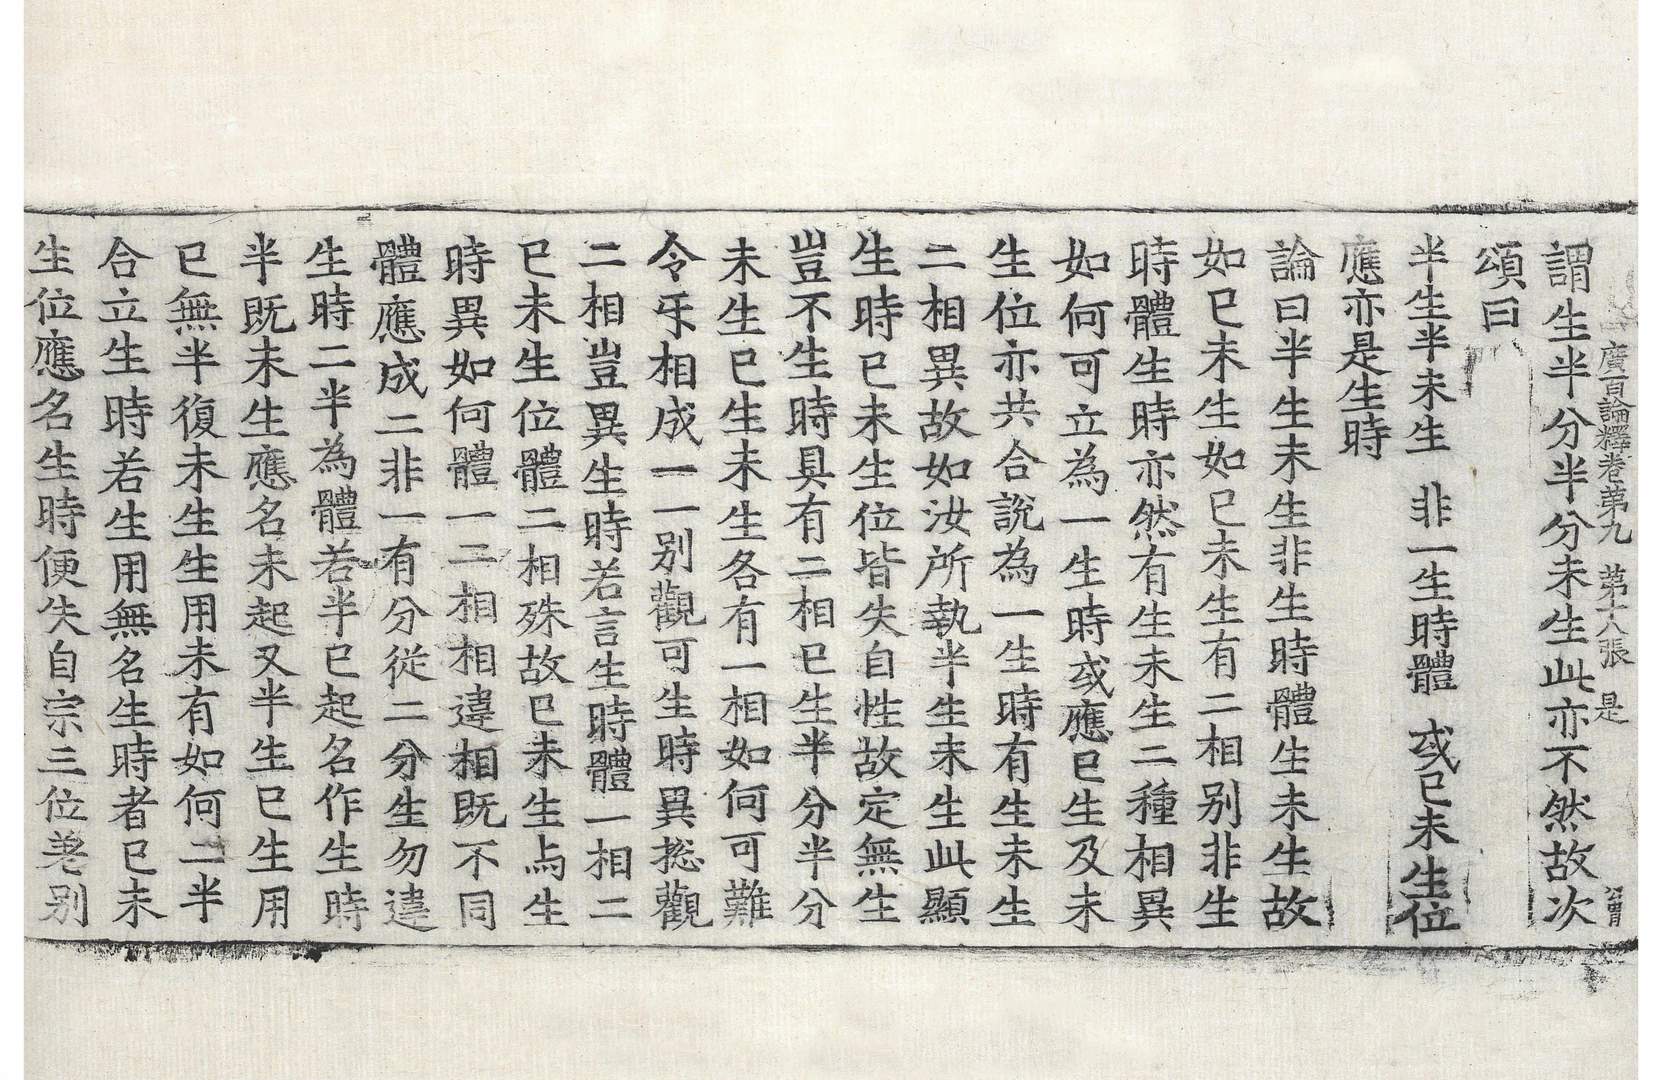 廣百論釋卷第九 第十八張 是
謂生半分半分未生此亦不然故次
頌曰
半生半未生 非一生時體 或已未生位
應亦是生時
論曰半生未生非生時體生未生故
如已未生如已未生有二相別非生
時體生時亦然有生未生二種相異
如何可立為一生時或應已生及未
生位亦共合說為一生時有生未生
二相異故如汝所執半生未生此顯
生時已未生位皆失自性故定無生
豈不生時具有二相已生半分半分
未生已生未生各有一相如何可難
令㸦相成一一別觀可生時異捴觀
二相豈異生時若言生時體一相二
已未生位體二相殊故已未生与生
時異如何體一二相相違相既不同
體應成二非一有分從二分生勿違
生時二半為體若半已起名作生時
半既未生應名未起又半生已生用
已無半復未生生用未有如何二半
合立生時若生用無名生時者已未
生位應名生時便失自宗三位差別